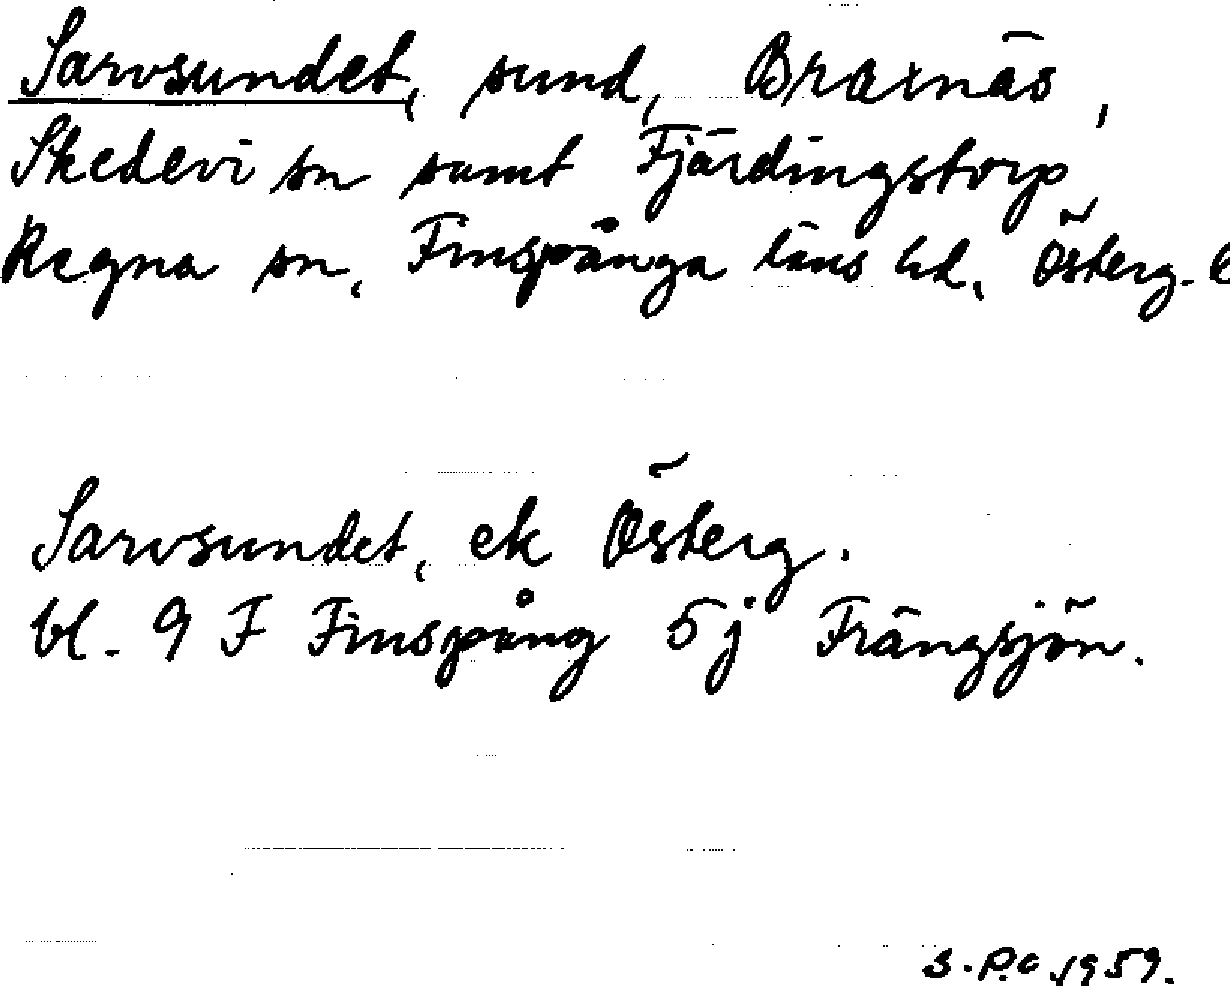 Sarvsundet, sund, Braxnäs,
Skedevi sn samt Fjärdingstorp,
Regna sn, Finspånga läns hd, Österg. l
Sarvsundet, ek Österg.
bl. 9 F Finspång 5j Frängsjön.
S.P.C 1959.